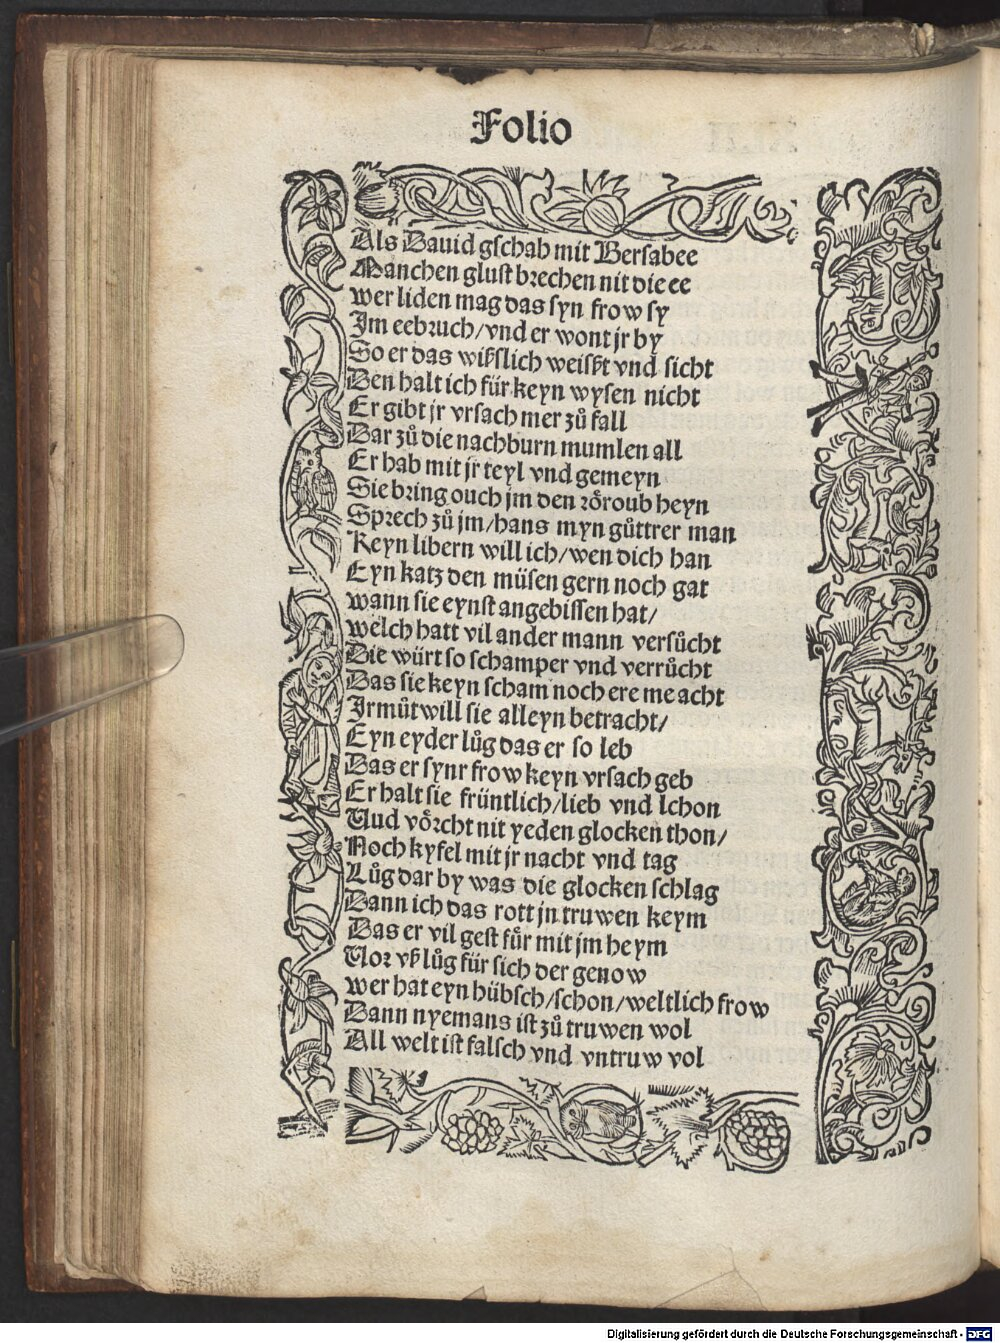 Folio
Als Dauid gschah mit Bersabee
Manchen glust brechen nit die ee
wer liden mag das syn frow sy
Im eebruch/vnd er wont jr by
So er das wißlich weißt vnd sicht
Den halt ich für keyn wysen nicht
Er gibt jr vrsach mer zů fall
Dar zů die nachburn mumlen all
Er hab mit jr teyl vnd gemeyn
Sie bring ouch jm den röroub heyn
Sprech zů jm/hans myn gůttrer man
Keyn libern will ich/wen dich han
Eyn katz den müsen gern noch gat
wann sie eynst angebissen hat/
welch hatt vil ander mann versůcht
Die würt so schamper vnd verrůcht
Das sie keyn scham noch ere me acht
Irmůtwill sie alleyn betracht/
Eyn eyder lůg das er so leb
Das er synr frow keyn vrsach geb
Er halt sie früntlich/lieb vnd lchon
Uud vörcht nit yeden glocken thon/
Noch kyfel mit jr nacht vnd tag
Lůg dar by was die glocken schlag
Dann ich das rott jn truwen keym
Das er vil gest für mit jm heym
Vor vß lůg für sich der genow
wer hat eyn hübsch/schon/weltlich frow
Dann nyemans ist zů truwen wol
All welt ist falsch vnd vntruw vol
Digitalisierung gefördert durch die Deutsche Forschungsgemeinschaft - DFG